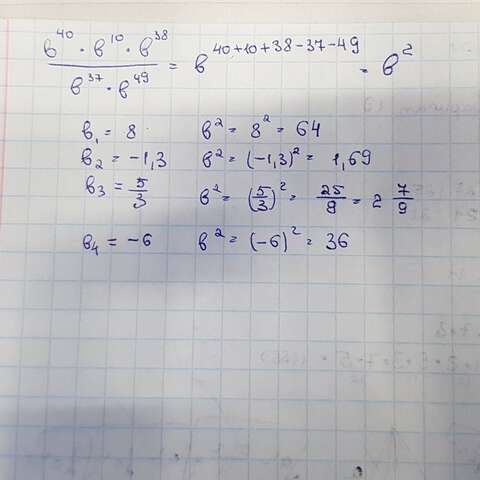 в^40 · в^10 · в^38 / в^37 · в^49 = в^40+10+38-37-49 = в^2
в1 = 8 в^2 = 8^2 = 64
в2 = -1,3 в^2 = (-1,3)^2 = 1,69
в3 = 5/3 в^2 = (5/3)^2 = 25/9 = 2 7/9
в4 = -6 в^2 = (-6)^2 = 36